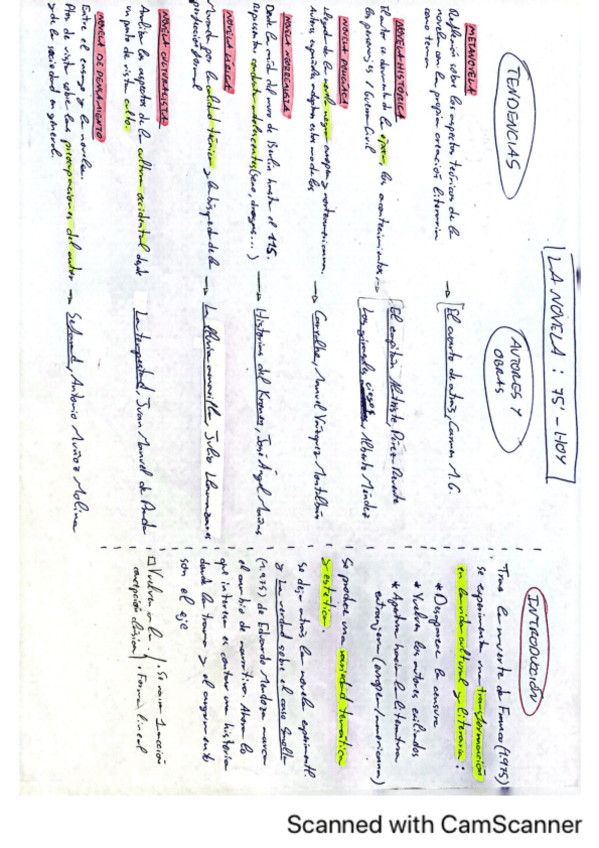 LA NOVELA: 75' - HOY
INTRODUCCIÓN
Tras la muerte de Franco (1.975)
se experimenta una transformación
en la vida cultural y literaria:
* Desaparece la censura
* Vuelven los autores exiliados
* Apertura hacia la literatura
extranjera (europea/americana)
Se produce una variedad temática
y estética.
Se deja atrás la novela experimentl.
y La verdad sobre el caso Savolta
(1.975) de Eduardo Mendoza marca
el cambio de narrativa. Ahora lo
que interesa es contar una historia
donde la trama y el argumento
son el eje
Vuelven a la
concepción clásica
. Se narra 1 acción
. Forma lineal
TENDENCIAS
AUTORES Y
OBRAS
METANOVELA
Reflexión sobre los aspectos teóricos de la
novela con la propia creación literaria
como tema
→ El cuento de atrás, Carmen M.G.
NOVELA HISTÓRICA
El autor se documenta de la época, los acontecimientos,
los personajes / Guerra Civil
→ El capitán Alatriste, Pérez Reverte
Los girasoles ciegos, Alberto Méndez
NOVELA POLICÍACA
Llegada de la novela negra europea y norteamericana.
Autores españoles adoptan estos modelos
→ Carvalho, Manuel Vázquez Montalbán
NOVELA NEORREALISTA
Desde la caída del muro de Berlín hasta el 11S.
Representan conductas adolescentes (sexo, drogas...)
→ Historias del Kronen, José Ángel Mañas
NOVELA LÍRICA
por la calidad técnica y la búsqueda de la
perfección formal
→ La lluvia amarilla, Julio Llamazares
NOVELA CULTURALISTA
Analiza los aspectos de la cultura occidental desde
un punto de vista culto.
La tempestad, Juan Manuel de Prada
NOVELA DE PENSAMIENTO
Entre el ensayo y la novela.
Pto. de vista sobre las preocupaciones del autor
y de la sociedad en general.
→ Sefarad, Antonio Muñoz Molina
Scanned with CamScanner